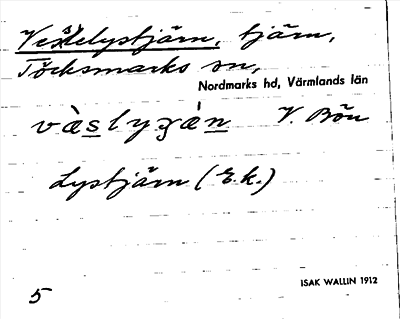 Vestlelystjärn, tjärn,
Töcksmarks sn,
Nordmarks hd, Värmlands län
V. Bön
Lystjärn (E.k.)
ISAK WALLIN 1912
5